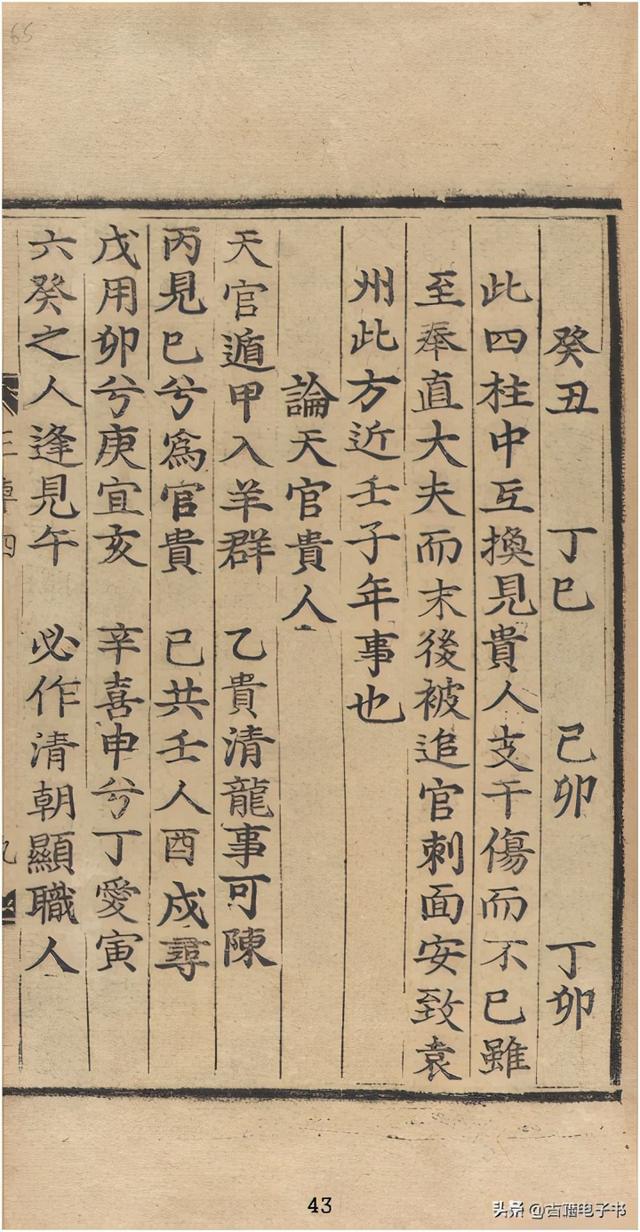 癸丑 丁巳 己卯 丁卯
此四柱中互換見貴人支干傷而不已雖
至奉直大夫而末後被追官刺面安致袁
州此方近壬子年事也
論天官貴人
天官遁甲入羊群 乙貴清龍事可陳
丙見巳兮為官貴 己共壬人酉戌尋
戊用卯兮庚宜亥 辛喜申兮丁愛寅
六癸之人逢見午 必作清朝顯職人
43
头条 @古籍电子书
65